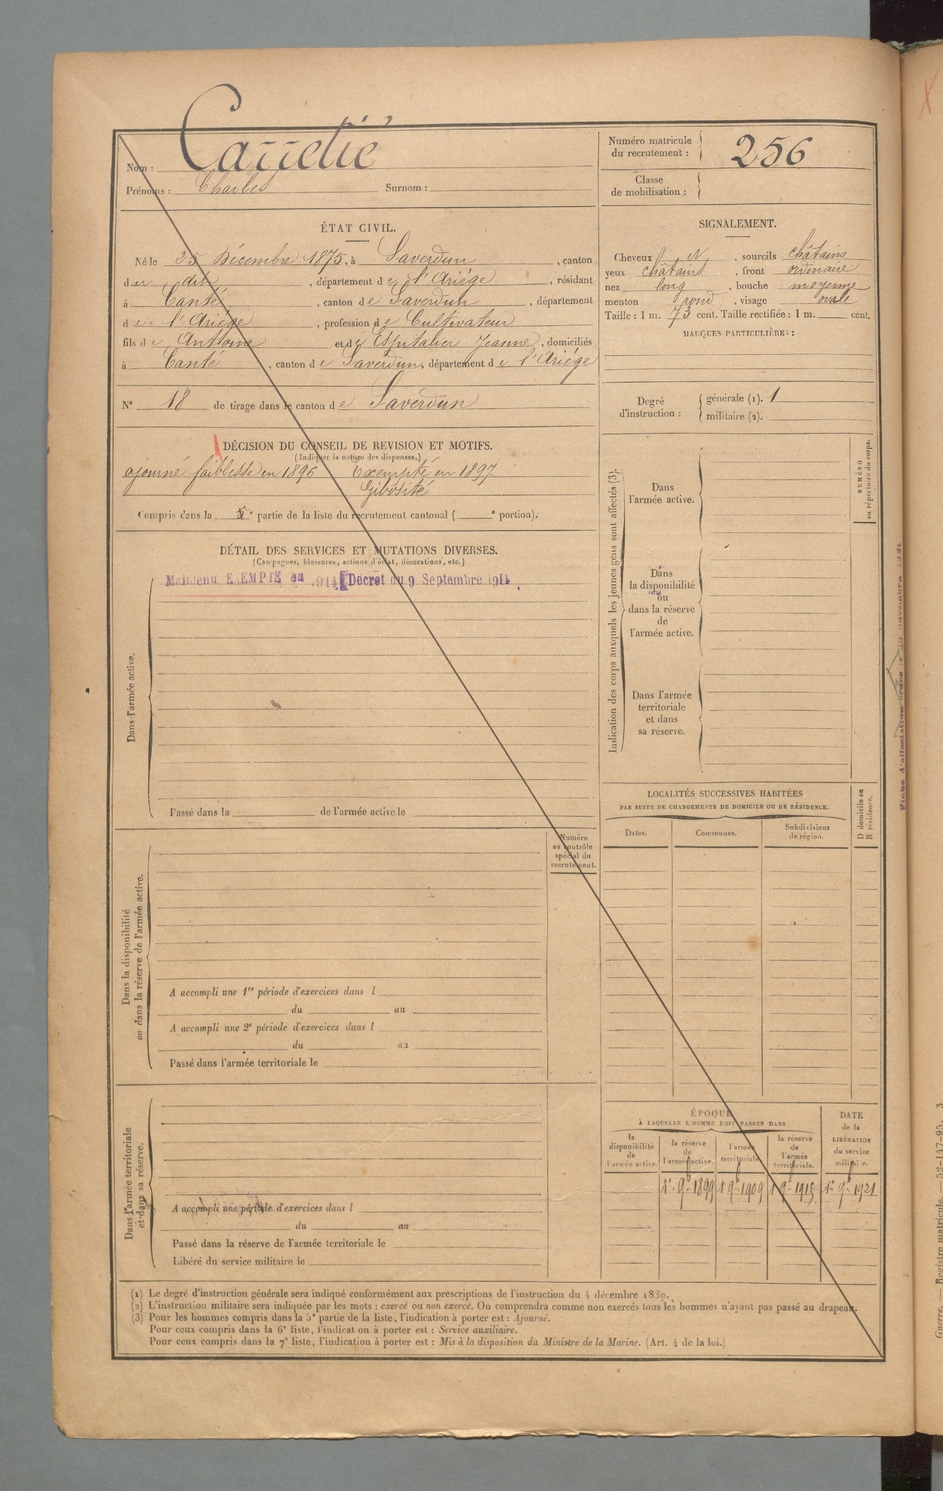 Nom : Carretié
Prénoms : Charles Surnom :
Numéro matricule du recrutement : 256
Classe de mobilisation :
ÉTAT CIVIL.
Né le 25 Décembre 1875, à Saverdun, canton
du dit, département de l'Ariège, résidant
à Canté, canton de Saverdun, département
de l'Ariège, profession de Cultivateur
fils de Antoine et de Espitalier Jeanne, domiciliés
à Canté, canton de Saverdun, département de l'Ariège
N° 18 de tirage dans le canton de Saverdun
SIGNALEMENT.
Cheveux N, sourcils châtains
yeux châtains, front ordinaire
nez long, bouche moyenne
menton rond, visage ovale
Taille : 1 m. 73 cent. Taille rectifiée : 1 m. cent.
MARQUES PARTICULIÈRES :
Degré d'instruction : générale (1). 1
militaire (2).
DÉCISION DU CONSEIL DE REVISION ET MOTIFS.
(Indiquer la nature des dispenses.)
ajourné faiblesse en 1896 Exempté en 1897
Gibosité
Compris dans la 5e partie de la liste du recrutement cantonal ( e portion).
DÉTAIL DES SERVICES ET MUTATIONS DIVERSES.
(Campagnes, blessures, actions d'éclat, décorations, etc.)
Maintenu EXEMPTÉ en 1914 Décret du 9 Septembre 1914
Dans l'armée active.
Passé dans la de l'armée active le
Numéro au contrôle spécial du recrutement.
Dans la disponibilité
ou dans la réserve de l'armée active.
A accompli une 1re période d'exercices dans l
du au
A accompli une 2e période d'exercices dans l
du au
Passé dans l'armée territoriale le
Dans l'armée territoriale
et dans sa réserve.
A accompli une période d'exercices dans l
du au
Passé dans la réserve de l'armée territoriale le
Libéré du service militaire le
Indication des corps auxquels les jeunes gens sont affectés (3).
Dans
l'armée active.
Dans
la disponibilité
ou
dans la réserve
de
l'armée active.
Dans l'armée
territoriale
et dans
sa réserve.
NUMÉRO
au répertoire du corps.
LOCALITÉS SUCCESSIVES HABITÉES
PAR SUITE DE CHANGEMENTS DE DOMICILE OU DE RÉSIDENCE.
Dates. Communes. Subdivisions de région.
D domicile ou
R résidence.
ÉPOQUE
À LAQUELLE L'HOMME DOIT PASSER DANS
la disponibilité de l'armée active.
la réserve de l'armée active.
l'armée territoriale.
la réserve de l'armée territoriale.
DATE de la LIBÉRATION du service militaire.
1er 9bre 1899 1 9bre 1909 1 9bre 1915 1er 9bre 1921
(1) Le degré d'instruction générale sera indiqué conformément aux prescriptions de l'instruction du 4 décembre 1889.
(2) L'instruction militaire sera indiquée par les mots : exercé ou non exercé. On comprendra comme non exercés tous les hommes n'ayant pas passé au drapeau.
(3) Pour les hommes compris dans la 5e partie de la liste, l'indication à porter est : Ajourné.
Pour ceux compris dans la 6e liste, l'indication à porter est : Service auxiliaire.
Pour ceux compris dans la 7e liste, l'indication à porter est : Mis à la disposition du Ministre de la Marine. (Art. 4 de la loi.)
Guerre. Registre matricule. — 52-147-95. 3